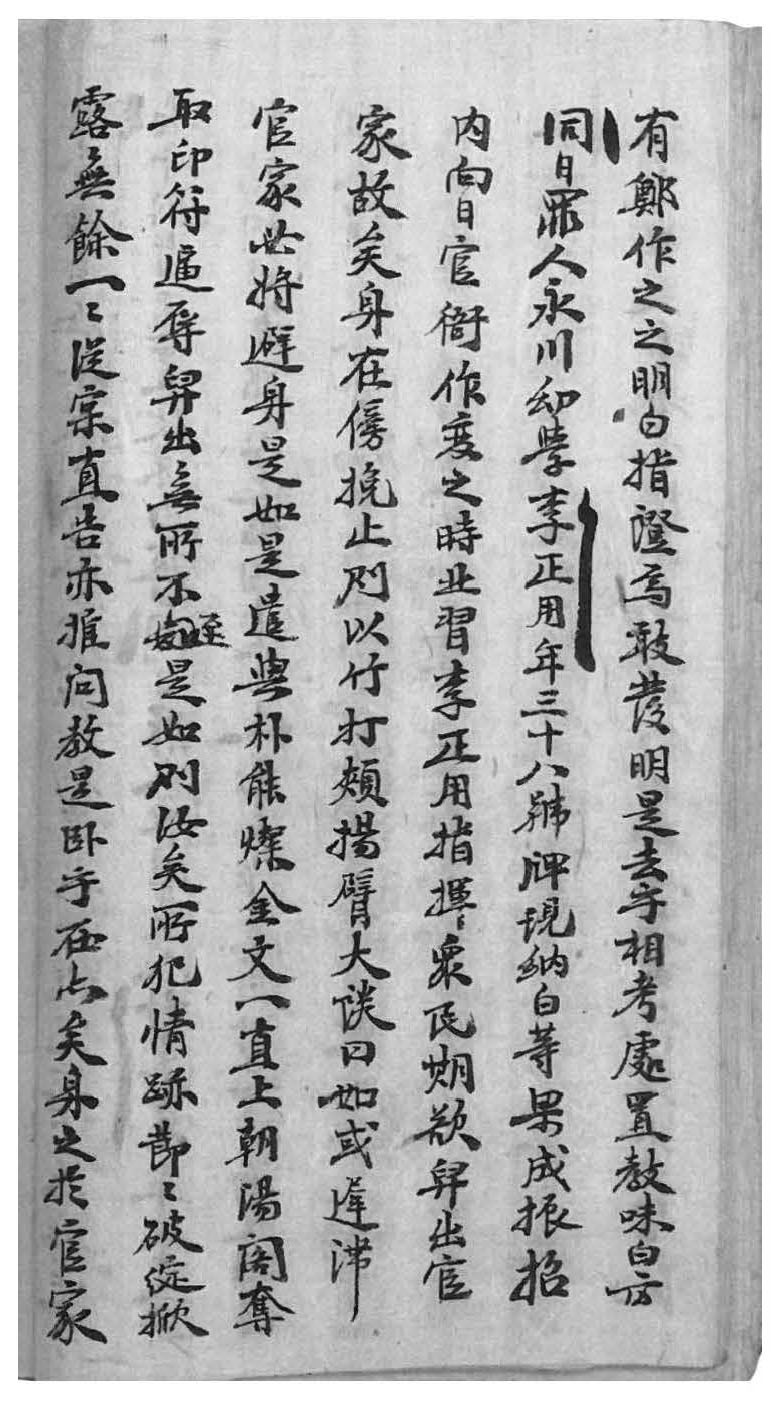 有鄭作之之明白指證焉敢發明是去乎相考處置敎味白齊
同日罪人永川幼學李正用年三十八號牌現納白等果成振招
内向日官衙作変之時北習李正用指揮衆民期欲舁出官
家故矣身在傍挽止則以竹打頰揚臂大談曰如或遲滯
官家必將避身是如是遣與朴能燦金文一直上朝湯閣奪
取印符逼辱舁出無所不至是如則汝矣所犯情跡節〻破綻掀
露無餘一〻從実直告亦推問敎是卧乎在亦矣身之於官家